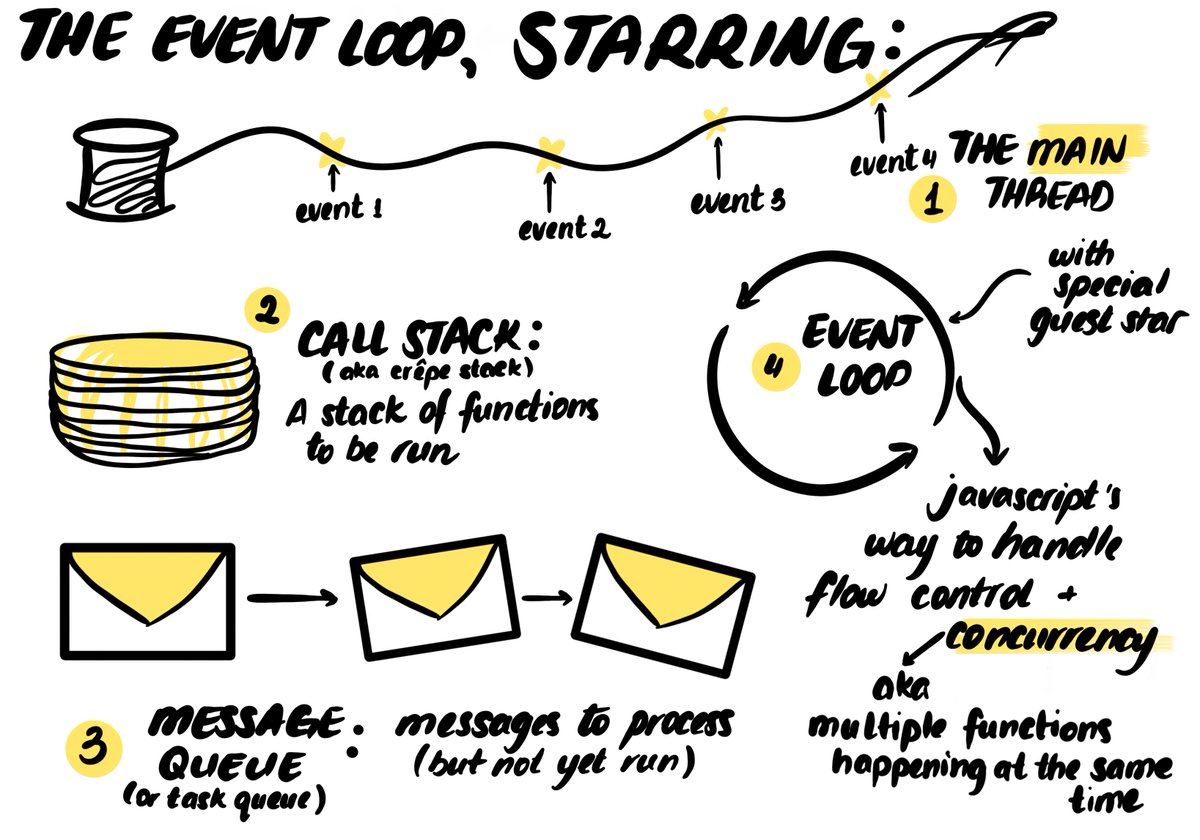 THE EVENT LOOP, STARRING:
event 1
event 2
event 3
event 4
1
THE MAIN
THREAD
2
CALL STACK:
(aka crêpe stack)
A stack of functions
to be run
with
special
guest star
4
EVENT
LOOP
javascript's
way to handle
flow control +
concurrency
aka
multiple functions
happening at the same
time
3
MESSAGE
QUEUE :
(or task queue)
messages to process
(but not yet run)